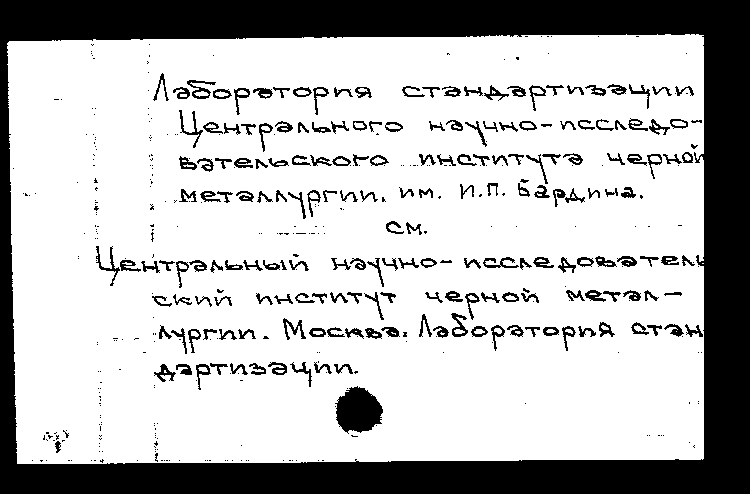 Лаборатория стандартизации
Центрального научно-исследо-
вательского института черной
металлургии. им. И.П. Бардина.
см.
Центральный научно-исследователь
ский институт черной метал-
лургии. Москва. Лаборатория стан
дартизации.